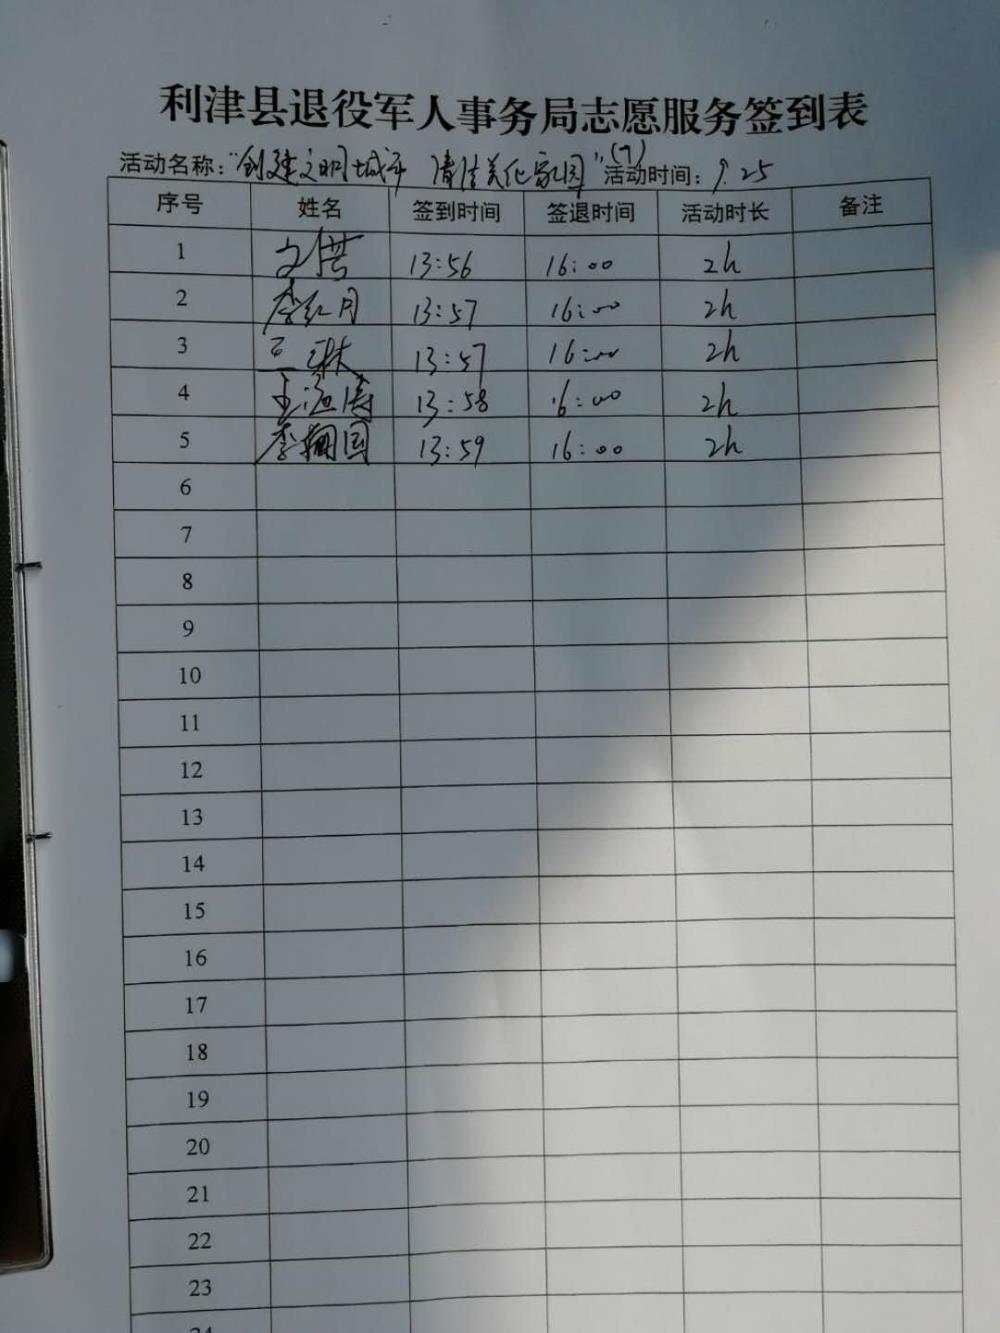 利津县退役军人事务局志愿服务签到表
活动名称："创建文明城市 清洁美化家园"(7) 活动时间：9.25
序号 姓名 签到时间 签退时间 活动时长 备注
1 13:56 16:00 2h
2 李红月 13:57 16:00 2h
3 13:57 16:00 2h
4 王海涛 13:58 16:00 2h
5 国 13:59 16:00 2h
6
7
8
9
10
11
12
13
14
15
16
17
18
19
20
21
22
23
24